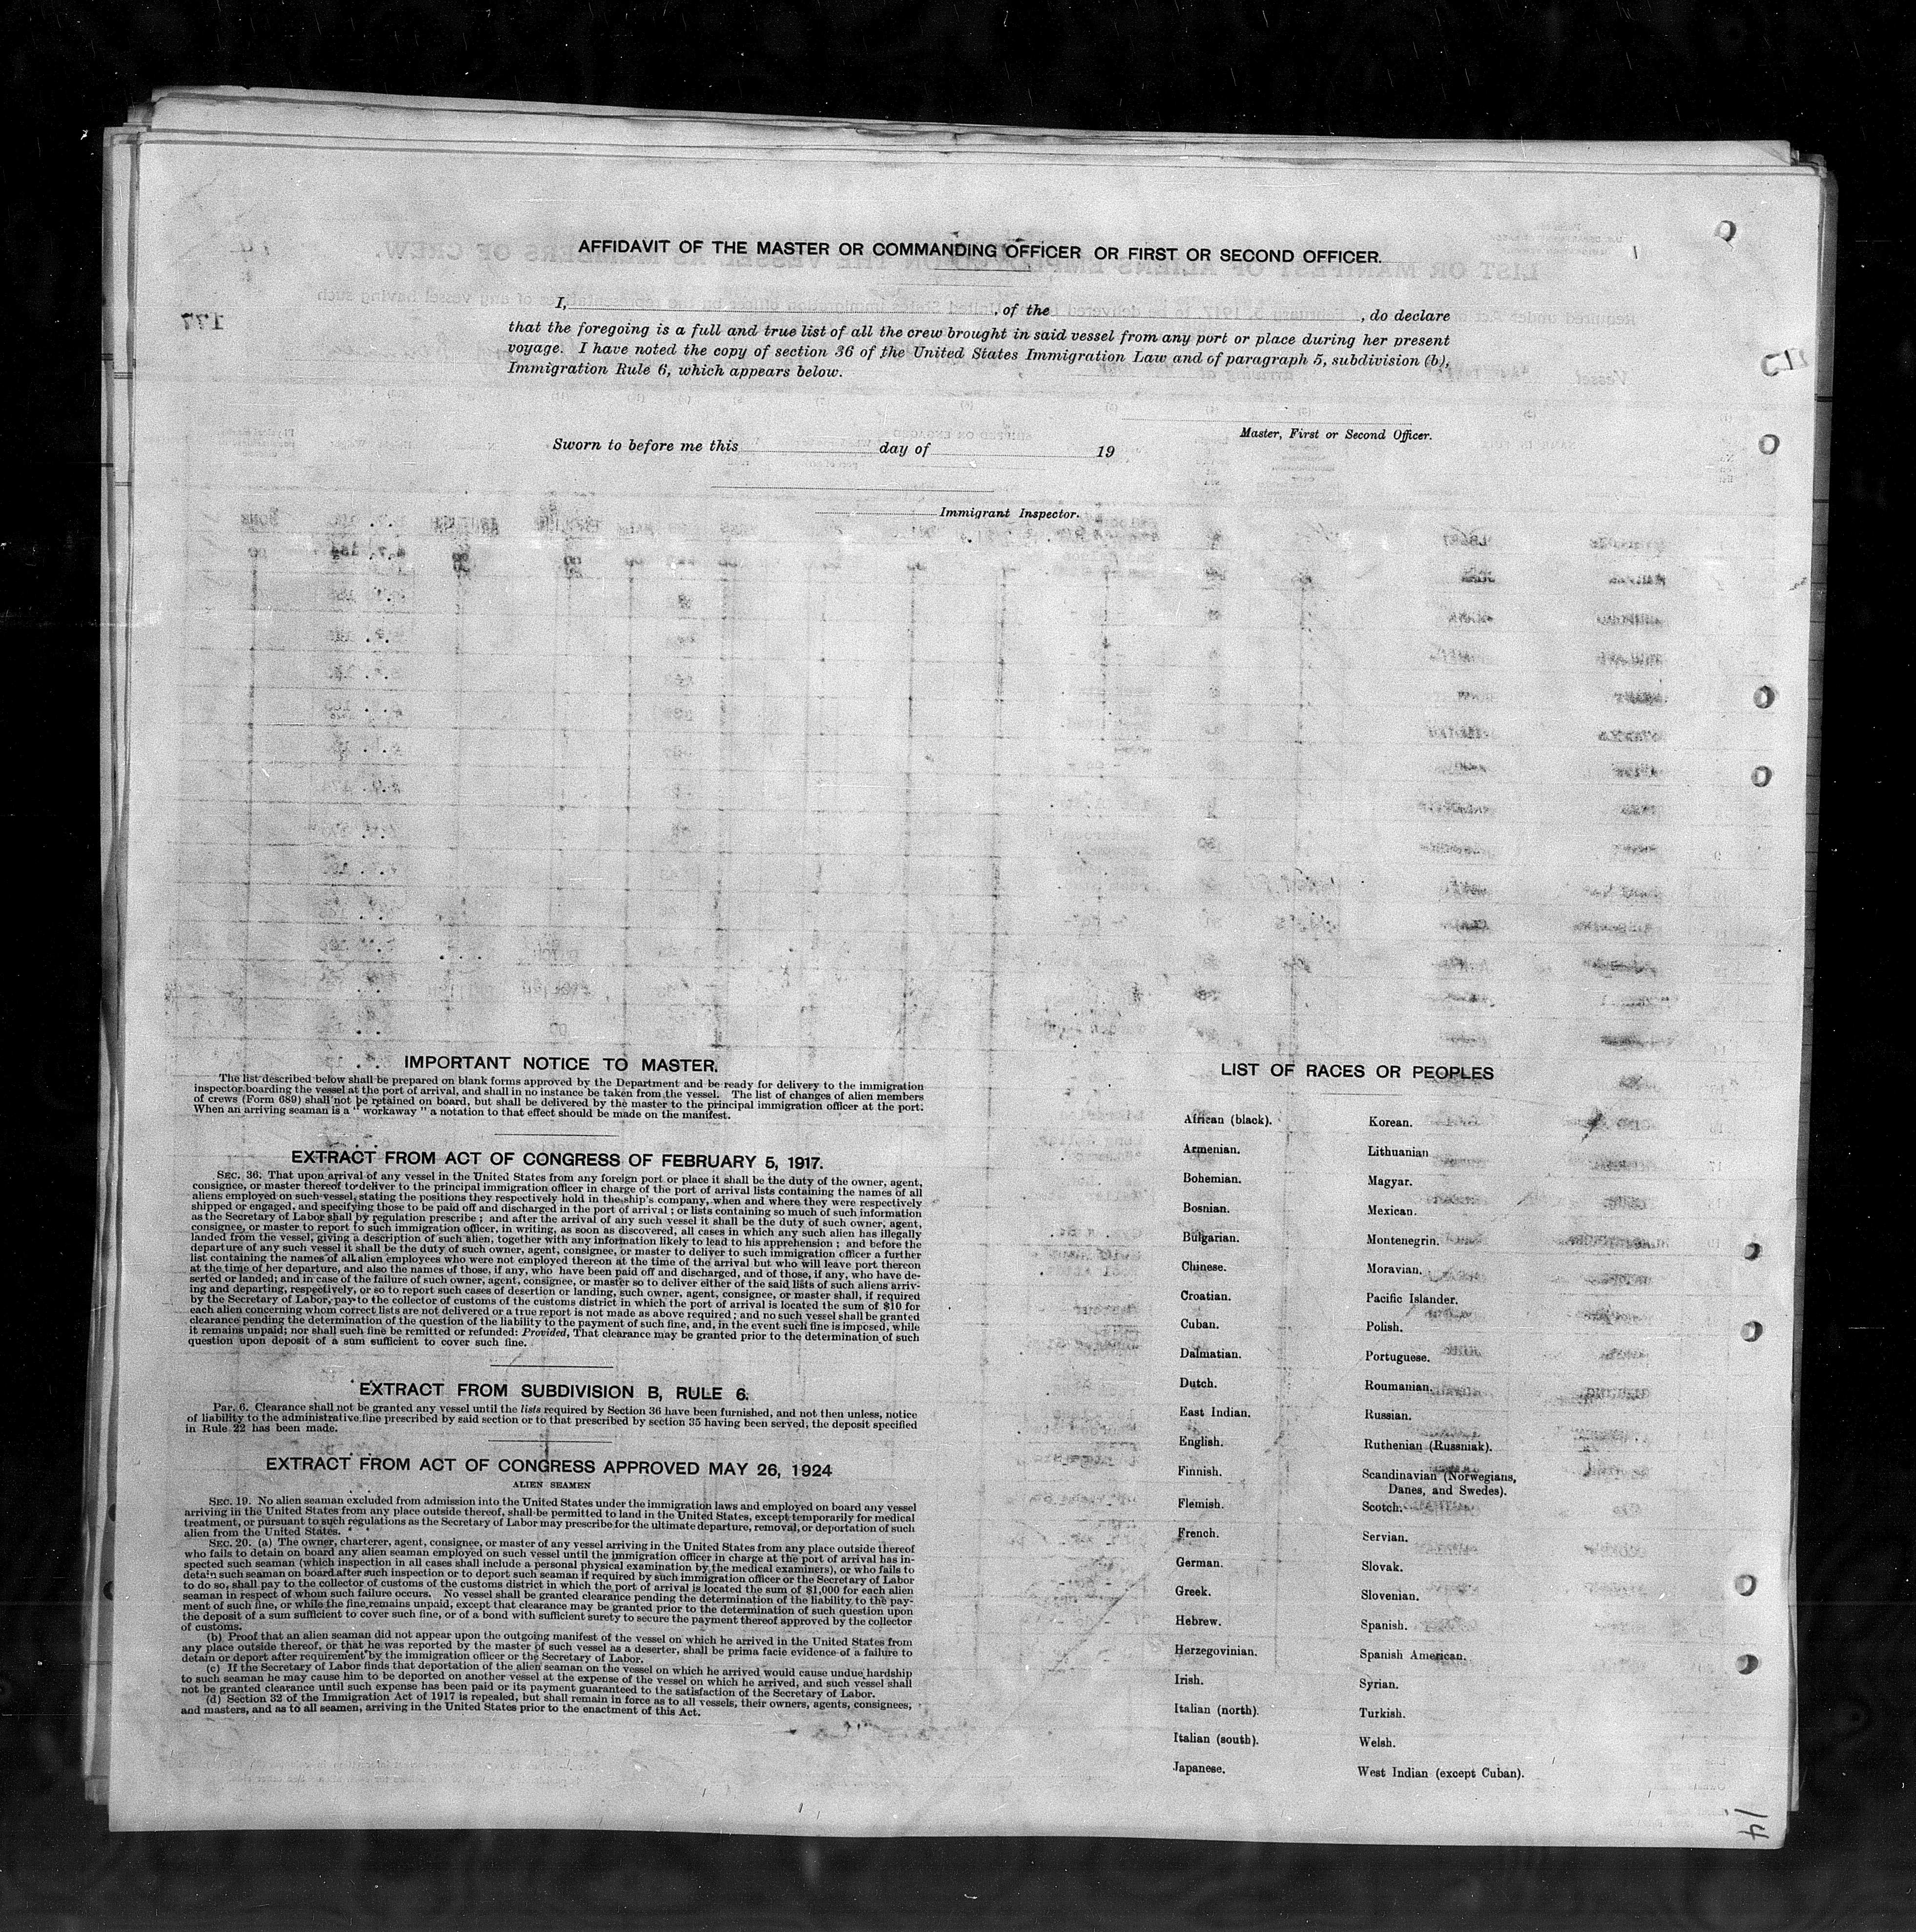 AFFIDAVIT OF THE MASTER OR COMMANDING OFFICER OR FIRST OR SECOND OFFICER.
I, , of the , do declare
that the foregoing is a full and true list of all the crew brought in said vessel from any port or place during her present
voyage. I have noted the copy of section 36 of the United States Immigration Law and of paragraph 5, subdivision (b),
Immigration Rule 6, which appears below.
Master, First or Second Officer.
Sworn to before me this day of 19
Immigrant Inspector.
IMPORTANT NOTICE TO MASTER.
The list described below shall be prepared on blank forms approved by the Department and be ready for delivery to the immigration
inspector boarding the vessel at the port of arrival, and shall in no instance be taken from the vessel. The list of changes of alien members
of crews (Form 689) shall not be retained on board, but shall be delivered by the master to the principal immigration officer at the port.
When an arriving seaman is a " workaway " a notation to that effect should be made on the manifest.
EXTRACT FROM ACT OF CONGRESS OF FEBRUARY 5, 1917.
SEC. 36. That upon arrival of any vessel in the United States from any foreign port or place it shall be the duty of the owner, agent,
consignee, or master thereof to deliver to the principal immigration officer in charge of the port of arrival lists containing the names of all
aliens employed on such vessel, stating the positions they respectively hold in the ship's company, when and where they were respectively
shipped or engaged, and specifying those to be paid off and discharged in the port of arrival ; or lists containing so much of such information
as the Secretary of Labor shall by regulation prescribe ; and after the arrival of any such vessel it shall be the duty of such owner, agent,
consignee, or master to report to such immigration officer, in writing, as soon as discovered, all cases in which any such alien has illegally
landed from the vessel, giving a description of such alien, together with any information likely to lead to his apprehension ; and before the
departure of any such vessel it shall be the duty of such owner, agent, consignee, or master to deliver to such immigration officer a further
list containing the names of all alien employees who were not employed thereon at the time of the arrival but who will leave port thereon
at the time of her departure, and also the names of those, if any, who have been paid off and discharged, and of those, if any, who have de-
serted or landed; and in case of the failure of such owner, agent, consignee, or master so to deliver either of the said lists of such aliens arriv-
ing and departing, respectively, or so to report such cases of desertion or landing, such owner, agent, consignee, or master shall, if required
by the Secretary of Labor, pay to the collector of customs of the customs district in which the port of arrival is located the sum of $10 for
each alien concerning whom correct lists are not delivered or a true report is not made as above required ; and no such vessel shall be granted
clearance pending the determination of the question of the liability to the payment of such fine, and, in the event such fine is imposed, while
it remains unpaid; nor shall such fine be remitted or refunded: Provided, That clearance may be granted prior to the determination of such
question upon deposit of a sum sufficient to cover such fine.
EXTRACT FROM SUBDIVISION B, RULE 6.
Par. 6. Clearance shall not be granted any vessel until the lists required by Section 36 have been furnished, and not then unless, notice
of liability to the administrative fine prescribed by said section or to that prescribed by section 35 having been served, the deposit specified
in Rule 22 has been made.
EXTRACT FROM ACT OF CONGRESS APPROVED MAY 26, 1924
ALIEN SEAMEN
SEC. 19. No alien seaman excluded from admission into the United States under the immigration laws and employed on board any vessel
arriving in the United States from any place outside thereof, shall be permitted to land in the United States, except temporarily for medical
treatment, or pursuant to such regulations as the Secretary of Labor may prescribe for the ultimate departure, removal, or deportation of such
alien from the United States.
SEC. 20. (a) The owner, charterer, agent, consignee, or master of any vessel arriving in the United States from any place outside thereof
who fails to detain on board any alien seaman employed on such vessel until the immigration officer in charge at the port of arrival has in-
spected such seaman (which inspection in all cases shall include a personal physical examination by the medical examiners), or who fails to
detain such seaman on board after such inspection or to deport such seaman if required by such immigration officer or the Secretary of Labor
to do so, shall pay to the collector of customs of the customs district in which the port of arrival is located the sum of $1,000 for each alien
seaman in respect of whom such failure occurs. No vessel shall be granted clearance pending the determination of the liability to the pay-
ment of such fine, or while the fine remains unpaid, except that clearance may be granted prior to the determination of such question upon
the deposit of a sum sufficient to cover such fine, or of a bond with sufficient surety to secure the payment thereof approved by the collector
of customs.
(b) Proof that an alien seaman did not appear upon the outgoing manifest of the vessel on which he arrived in the United States from
any place outside thereof, or that he was reported by the master of such vessel as a deserter, shall be prima facie evidence of a failure to
detain or deport after requirement by the immigration officer or the Secretary of Labor.
(c) If the Secretary of Labor finds that deportation of the alien seaman on the vessel on which he arrived would cause undue hardship
to such seaman he may cause him to be deported on another vessel at the expense of the vessel on which he arrived, and such vessel shall
not be granted clearance until such expense has been paid or its payment guaranteed to the satisfaction of the Secretary of Labor.
(d) Section 32 of the Immigration Act of 1917 is repealed, but shall remain in force as to all vessels, their owners, agents, consignees,
and masters, and as to all seamen, arriving in the United States prior to the enactment of this Act.
LIST OF RACES OR PEOPLES
African (black).
Armenian.
Bohemian.
Bosnian.
Bulgarian.
Chinese.
Croatian.
Cuban.
Dalmatian.
Dutch.
East Indian.
English.
Finnish.
Flemish.
French.
German.
Greek.
Hebrew.
Herzegovinian.
Irish.
Italian (north).
Italian (south).
Japanese.
Korean.
Lithuanian
Magyar.
Mexican.
Montenegrin.
Moravian.
Pacific Islander.
Polish.
Portuguese.
Roumanian.
Russian.
Ruthenian (Russniak).
Scandinavian (Norwegians,
Danes, and Swedes).
Scotch.
Servian.
Slovak.
Slovenian.
Spanish.
Spanish American.
Syrian.
Turkish.
Welsh.
West Indian (except Cuban).
14